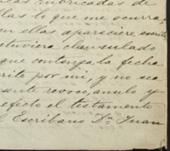 rubricadas de
las lo que me ocurra,
en ellas apareciere
estuviera clausulado
que contenga la fecha
rito por mi, y no sea
ante revoco, anulo y
efecto el testamento
Escribano Dn Juan